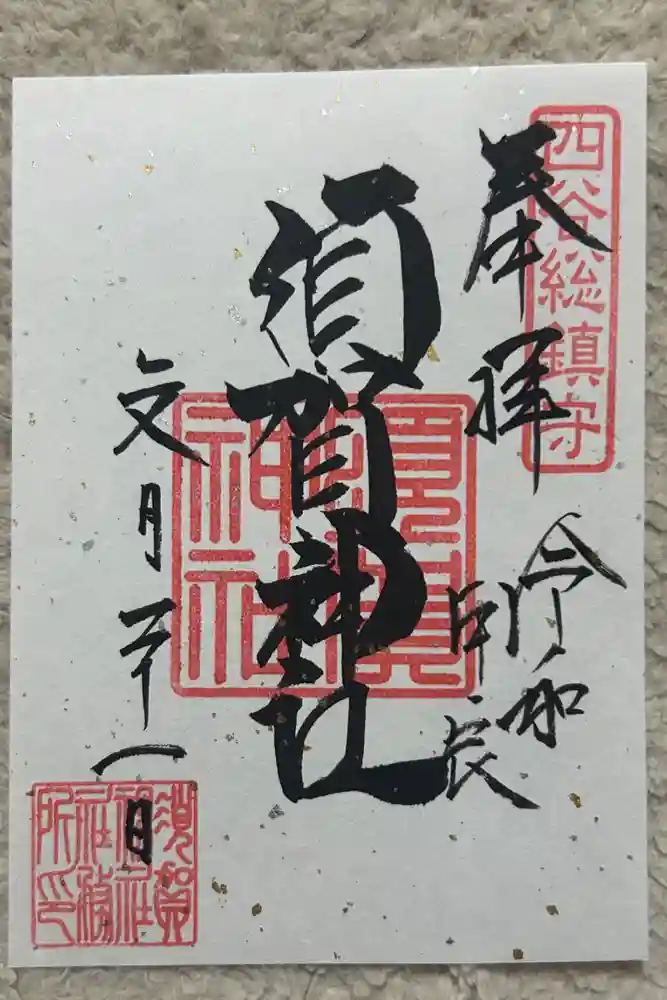 四谷総鎮守
奉拝
令和
甲辰
須賀神社
須賀神社
文月二十一日
須賀神社社務所印